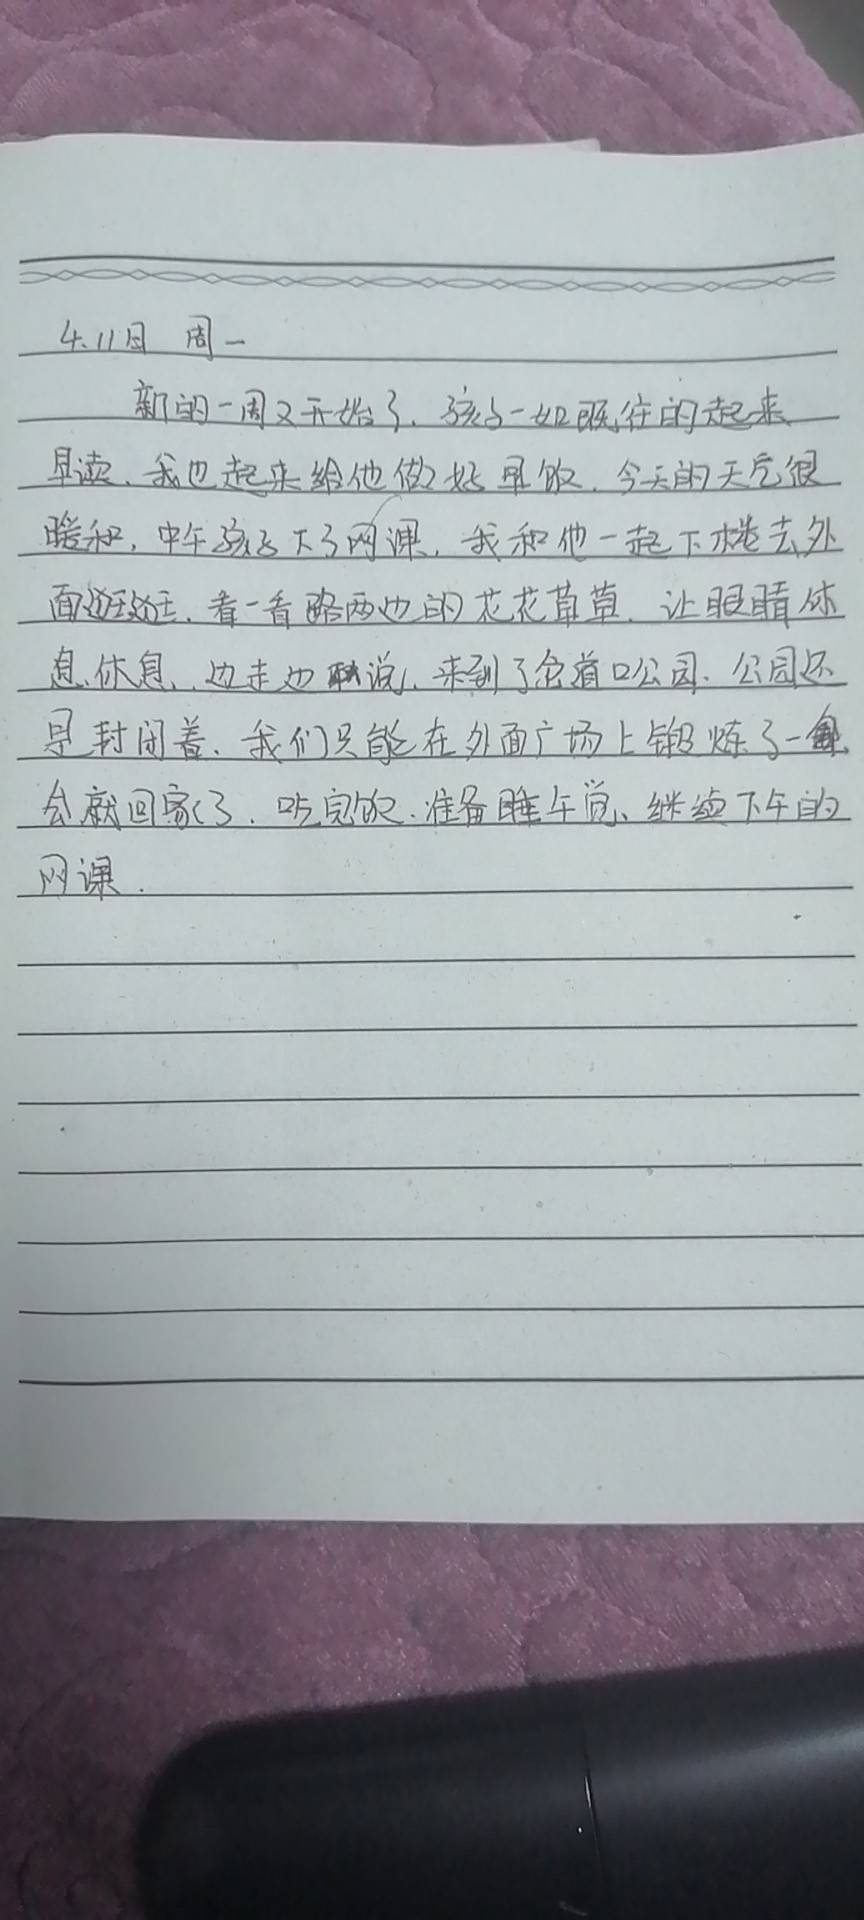 4.11日 周一
新的一周又开始了.孩子一如既往的起来
早读.我也起来给他做好早饭.今天的天气很
暖和,中午孩子下了网课,我和他一起下楼去外
面逛逛.看一看路两边的花花草草.让眼睛休
息休息.边走边说.来到了岔道口公园.公园还
是封闭着.我们只能在外面广场上锻炼了一
会就回家了.吃完饭.准备睡午觉、继续下午的
网课.